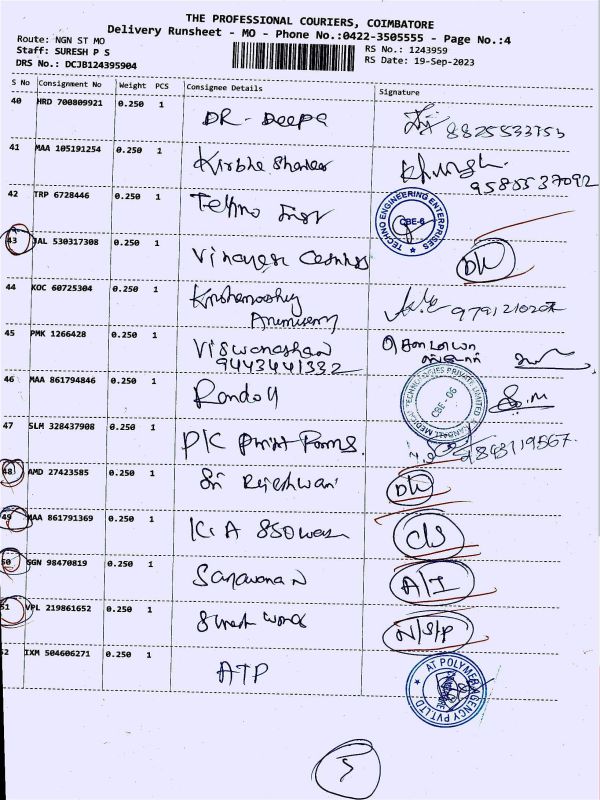 THE PROFESSIONAL COURIERS, COIMBATORE
Delivery Runsheet - MO - Phone No.:0422-3505555 - Page No.:4
Route: NGN ST MO
Staff: SURESH P S
DRS No.: DCJB124395904
RS No.: 1243959
RS Date: 19-Sep-2023
S No Consignment No Weight PCS Consignee Details Signature
40 HRD 700809921 0.250 1 DR - Deepa 8825833753
41 MAA 105191254 0.250 1 9585537092
42 TRP 6728446 0.250 1 Techno TECHNO ENGINEERING ENTERPRISES CBE-6
43 JAL 530317308 0.250 1 Vinayaga DL
44 KOC 60725304 0.250 1 9791210207
45 PMK 1266428 0.250 1 Viswanathan
9443441332
46 MAA 861794846 0.250 1 MEDICAL TECHNOLOGIES PRIVATE LIMITED CBE - 06 S.M
47 SLM 328437908 0.250 1 PK Print Forms. 9843119567
48 AMD 27423585 0.250 1 Sri Rajeshwari DL
49 MAA 861791369 0.250 1 C/S
50 SGN 98470819 0.250 1 Saravanan A/I
51 VPL 219861652 0.250 1 N/S/P
52 IXM 504606271 0.250 1 ATP AT POLYMER AGENCY PVT LTD
5